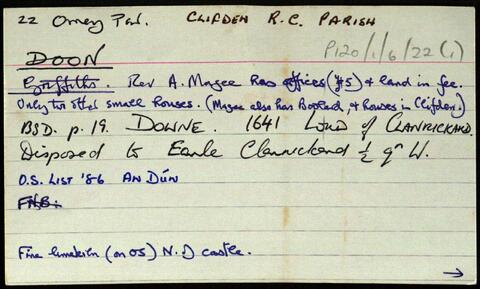 22 Omey Par. CLIFDEN R.C. PARISH
P120/1/6/22(1)
DOON
Griffiths. Rev A. Magee has offices (£5) & land in fee.
Only two other small houses. (Magee also has & houses in Clifden.)
BSD. p. 19. DOWNE. 1641 LORD of CLANRICKARD.
Disposed to Earle Clanrickard ½ qr U.
O.S. LIST '86 AN DÚN
FNB.
Fine (on OS) N. of castle.
→